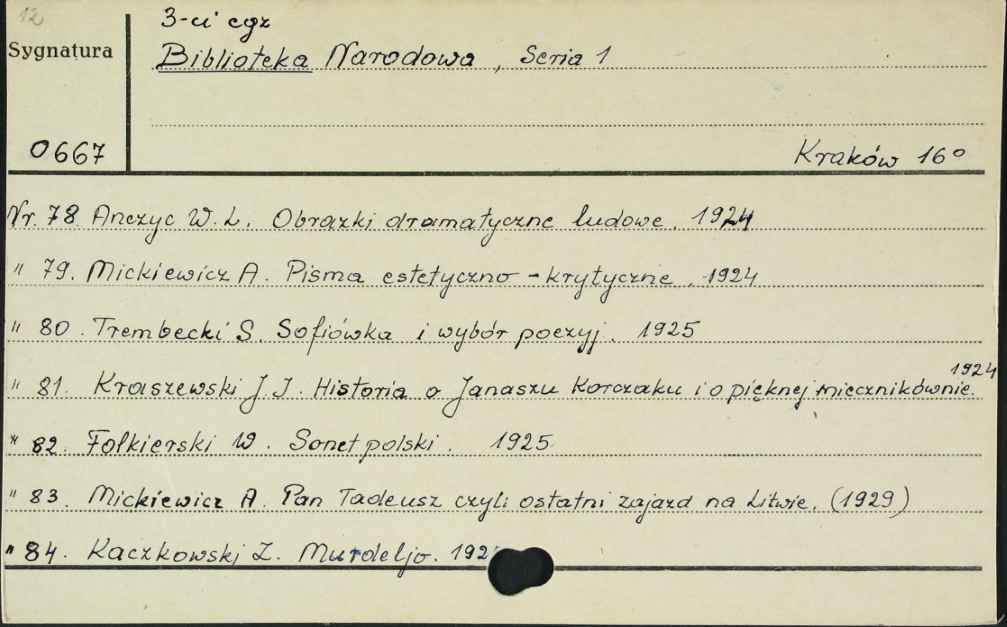 12
3-ci egz
Sygnatura
Biblioteka Narodowa, Seria 1
0667
Kraków 16°
Nr. 78. Anczyc W. L. Obrazki dramatyczne ludowe. 1924
" 79. Mickiewicz A. Pisma estetyczno-krytyczne. 1924
" 80. Trembecki S. Sofiówka i wybór poezyj. 1925
1924
" 81. Kraszewski J. I. Historia o Janaszu Korczaku i o pięknej miecznikównie.
" 82. Folkierski W. Sonet polski. 1925
" 83. Mickiewicz A. Pan Tadeusz czyli ostatni zajazd na Litwie. (1929)
" 84. Kaczkowski Z. Murdeljo.